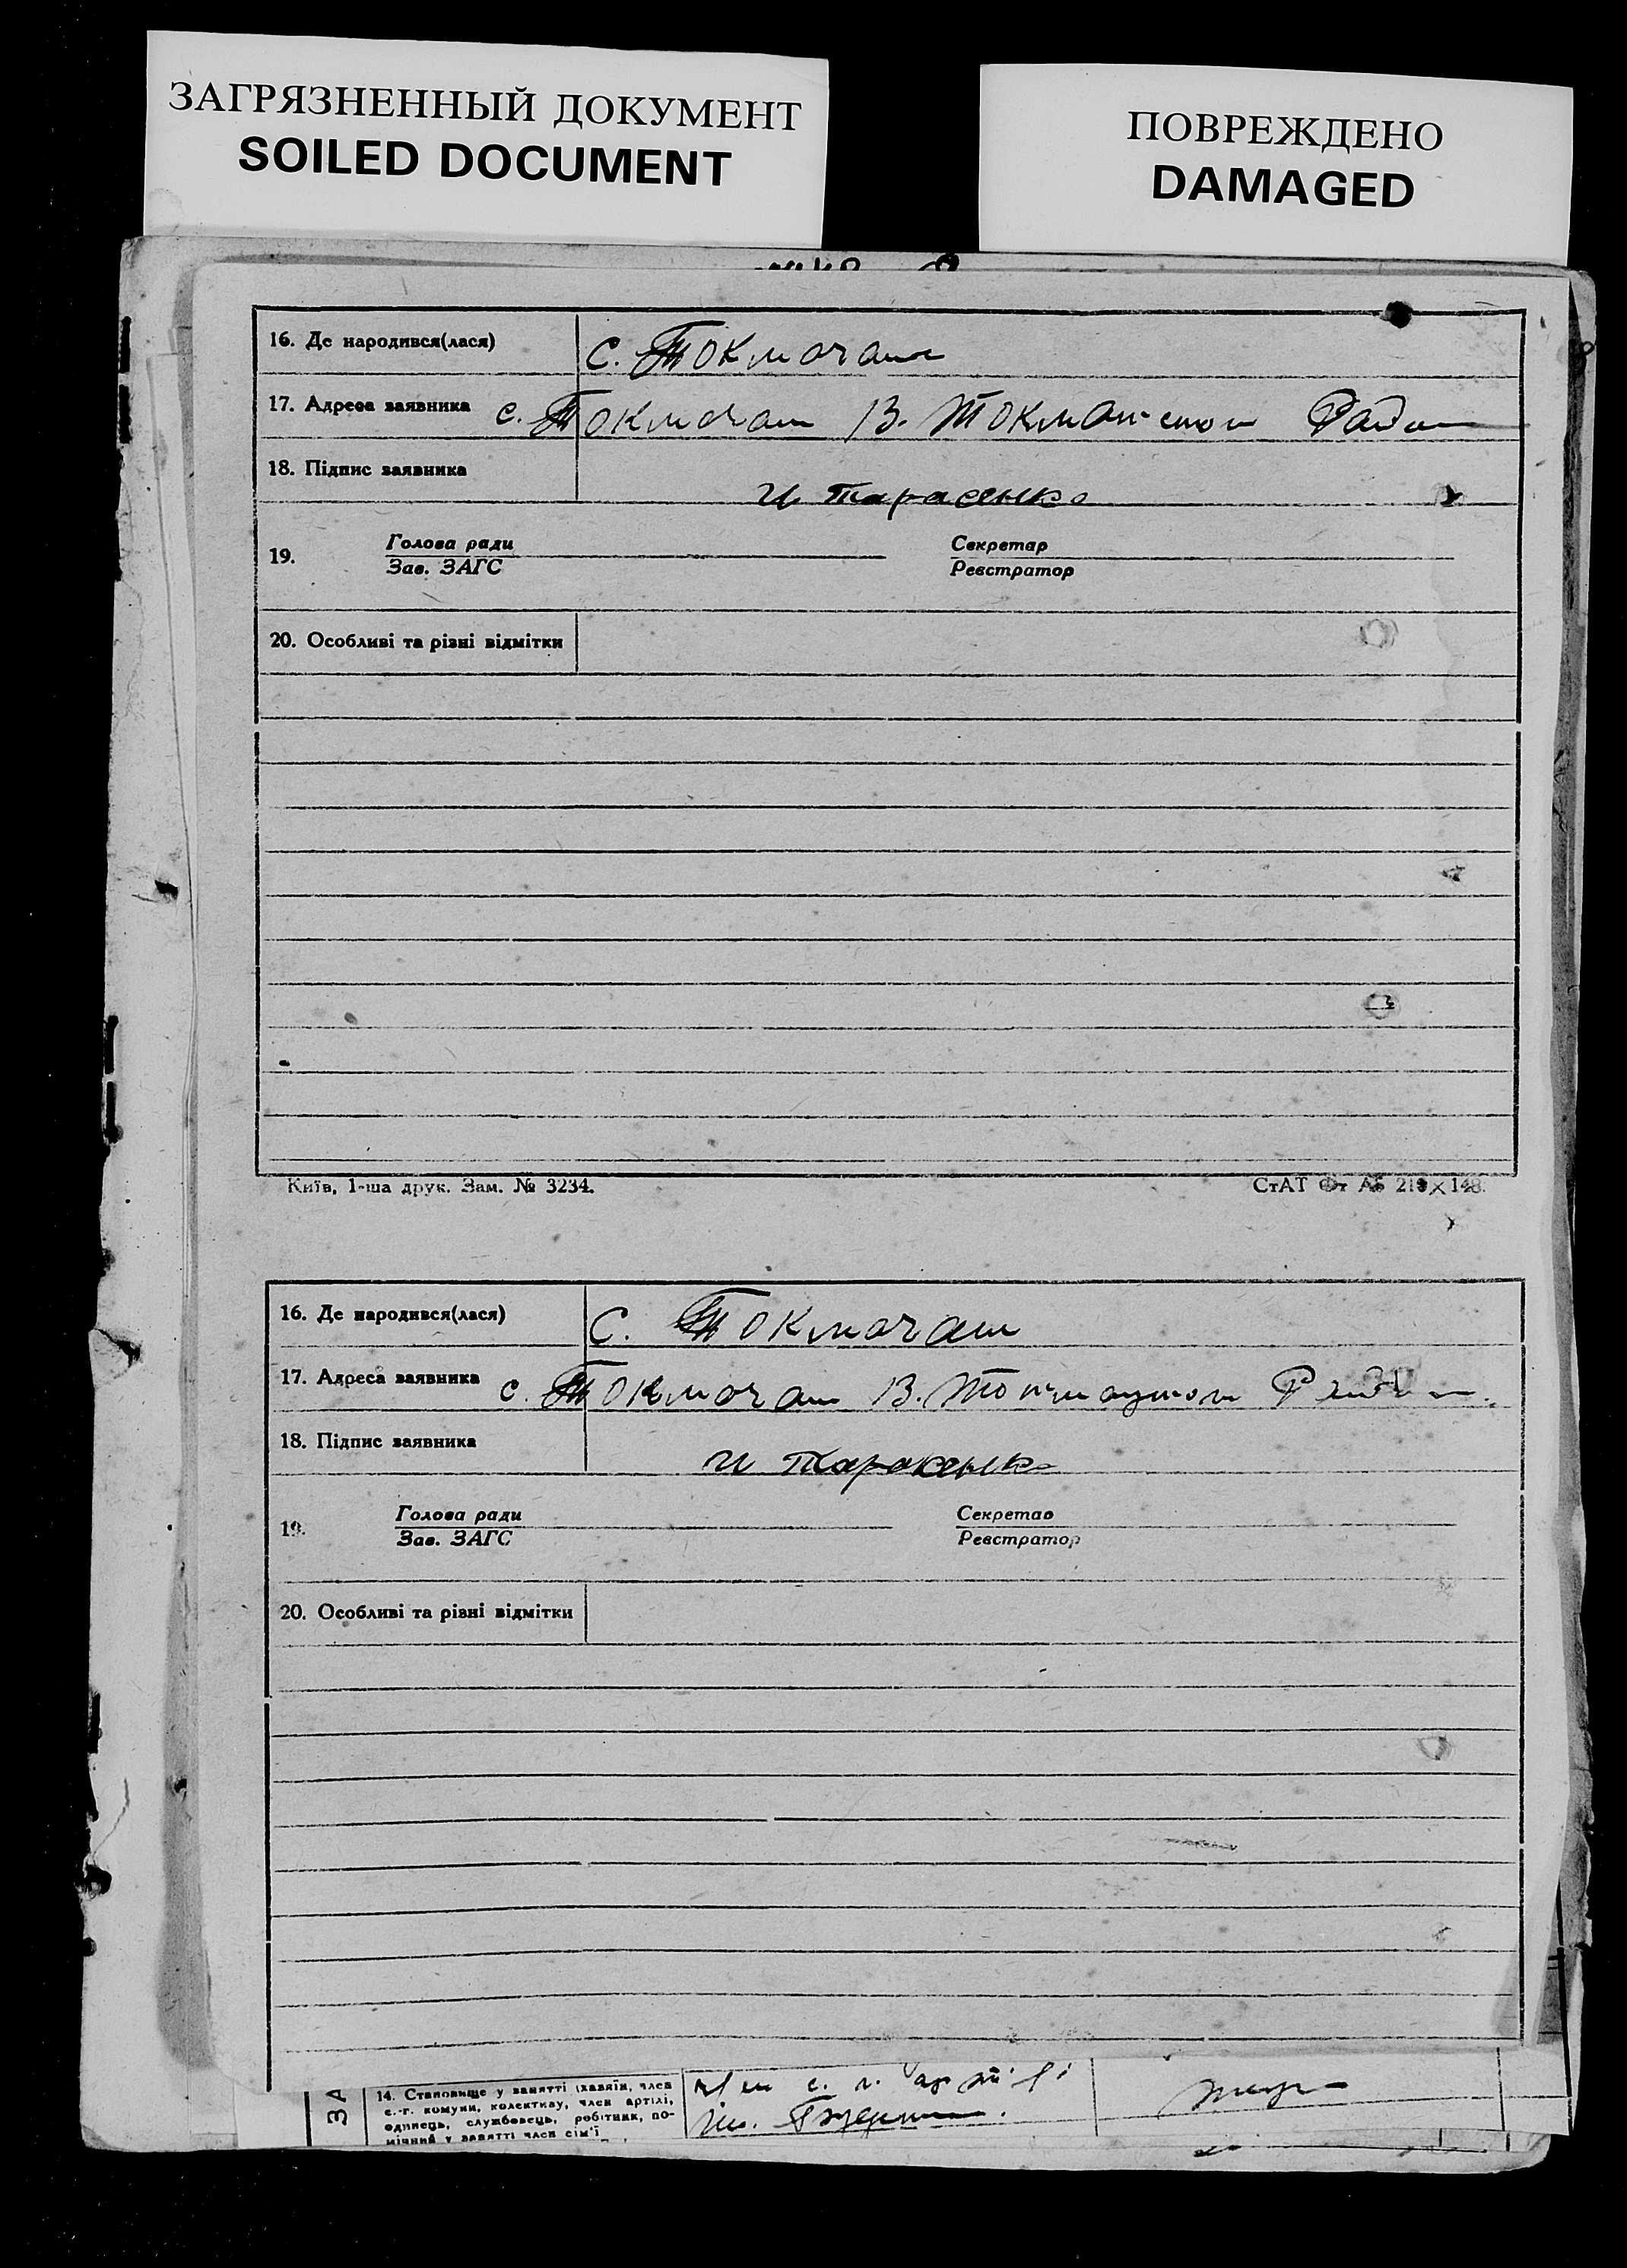 ЗАГРЯЗНЕННЫЙ ДОКУМЕНТ
SOILED DOCUMENT
ПОВРЕЖДЕНО
DAMAGED
16. Де народився(лася) с. Токмачаш
17. Адреса заявника с. Токмачаш В. Токмач
18. Підпис заявника И Тарасенко
19. Голова ради Секретар
Зав. ЗАГС Реєстратор
20. Особливі та різні відмітки
Київ, 1-ша друк. Зам. № 3234. СтАТ Фт А5 210×148.
16. Де народився(лася) с. Токмачаш
17. Адреса заявника с. Токмачаш В.
18. Підпис заявника И Тарасенко
19. Голова ради Секретар
Зав. ЗАГС Реєстратор
20. Особливі та різні відмітки
ЗА
14. Становище у занятті (хазяїн, член
с.-г. комуни, колективу, член артілі,
одинець, службовець, робітник, по-
мічний у занятті член сім'ї